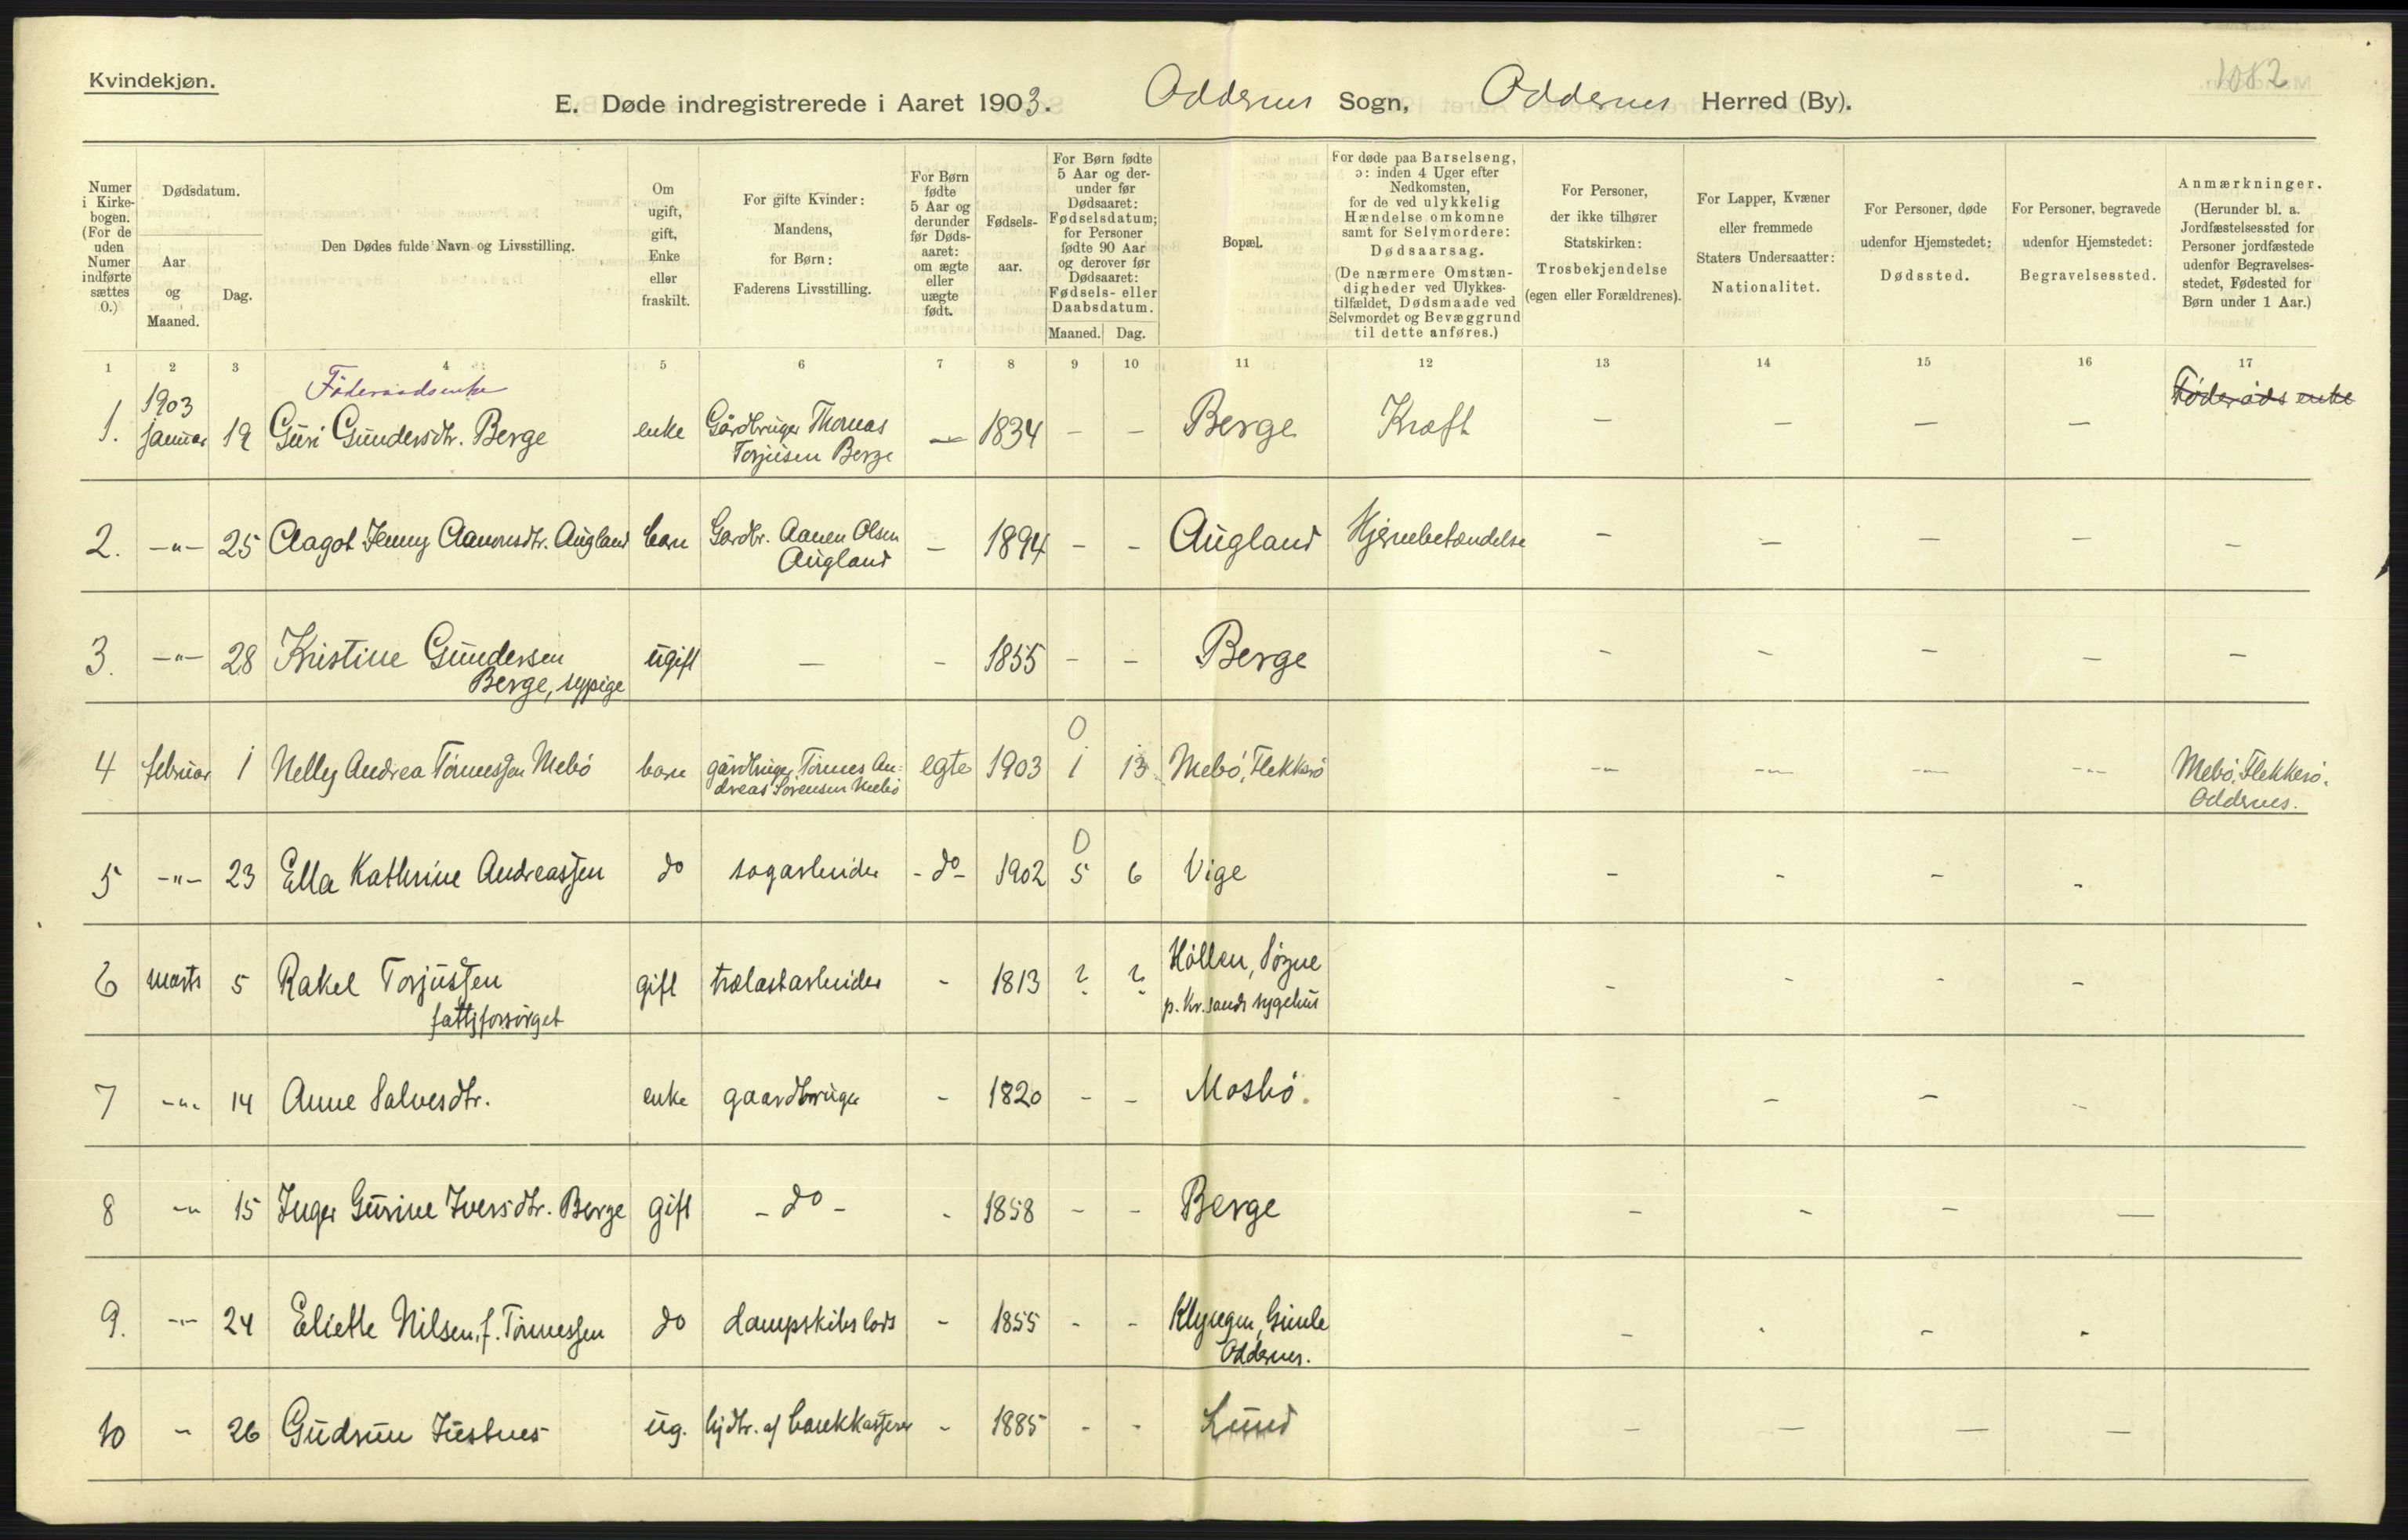 Kvindekjøn.
1082
E. Døde indregistrerede i Aaret 1903. Oddernes Sogn, Oddernes Herred (By).
Numer i Kirkebogen. (For de uden Numer indførte sættes 0.)
Dødsdatum.
Aar og Maaned.
Dag.
Den Dødes fulde Navn og Livsstilling.
Om ugift, gift, Enke eller fraskilt.
For gifte Kvinder: Mandens, for Børn: Faderens Livsstilling.
For Børn fødte 5 Aar og derunder før Dødsaaret: om ægte eller uægte født.
Fødselsaar.
For Børn fødte 5 Aar og derunder før Dødsaaret: Fødselsdatum; for Personer fødte 90 Aar og derover før Dødsaaret: Fødsels- eller Daabsdatum.
Maaned. Dag.
Bopæl.
For døde paa Barselseng, ɔ: inden 4 Uger efter Nedkomsten, for de ved ulykkelig Hændelse omkomne samt for Selvmordere: Dødsaarsag. (De nærmere Omstændigheder ved Ulykkestilfældet, Dødsmaade ved Selvmordet og Bevæggrund til dette anføres.)
For Personer, der ikke tilhører Statskirken: Trosbekjendelse (egen eller Forældrenes).
For Lapper, Kvæner eller fremmede Staters Undersaatter: Nationalitet.
For Personer, døde udenfor Hjemstedet: Dødssted.
For Personer, begravede udenfor Hjemstedet: Begravelsessted.
Anmærkninger. (Herunder bl. a. Jordfæstelsessted for Personer jordfæstede udenfor Begravelsesstedet, Fødested for Børn under 1 Aar.)
1 2 3 4 5 6 7 8 9 10 11 12 13 14 15 16 17
1903 Föderaadsenke Føderåds enke
1. januar 19 Guri Gundersdtr. Berge enke Gårdbruger Thomas Torjusen Berge — 1834 - - Berge Kræft — — — —
2. -"- 25 Aagot Jenny Aanonsdtr. Augland barn Gardbr. Aanen Olsen Augland - 1894 - - Augland Hjernebetændelse - - - - -
3. -"- 28 Kristine Gundersen Berge, sypige ugift — - 1855 - - Berge - - - - -
0
4 februar 1 Nelly Andrea Tönnessen Mebö barn gårdbruger Tönnes Andreas Sörensen Mebö egte 1903 1 13 Mebö, Flekkerö - - - - Mebö, Flekkerö. Oddernes.
0
5 -"- 23 Ella Kathrine Andreassen do sagarbeider - do - 1902 5 6 Vige - - - -
6 marts 5 Rakel Torjussen fattigforsörget gift trælastarbeider - 1813 ? ? Höllen, Søgne p. Kr.sands sygehus - - - -
7 -"- 14 Anne Salvesdtr. enke gaardbruger - 1820 - - Mosbö. - - - -
8 -"- 15 Inger Gurine Iversdtr. Berge gift - do - - 1858 - - Berge - - - —
9. -"- 24 Eliette Nilsen, f. Tönnessen do dampskibslods - 1855 - - Klyngen, Gimle Oddernes. - - - -
10 - 26 Gudrun Justnes ug. hjdtr. af bankkasserer - 1885 - - Lund - — — —